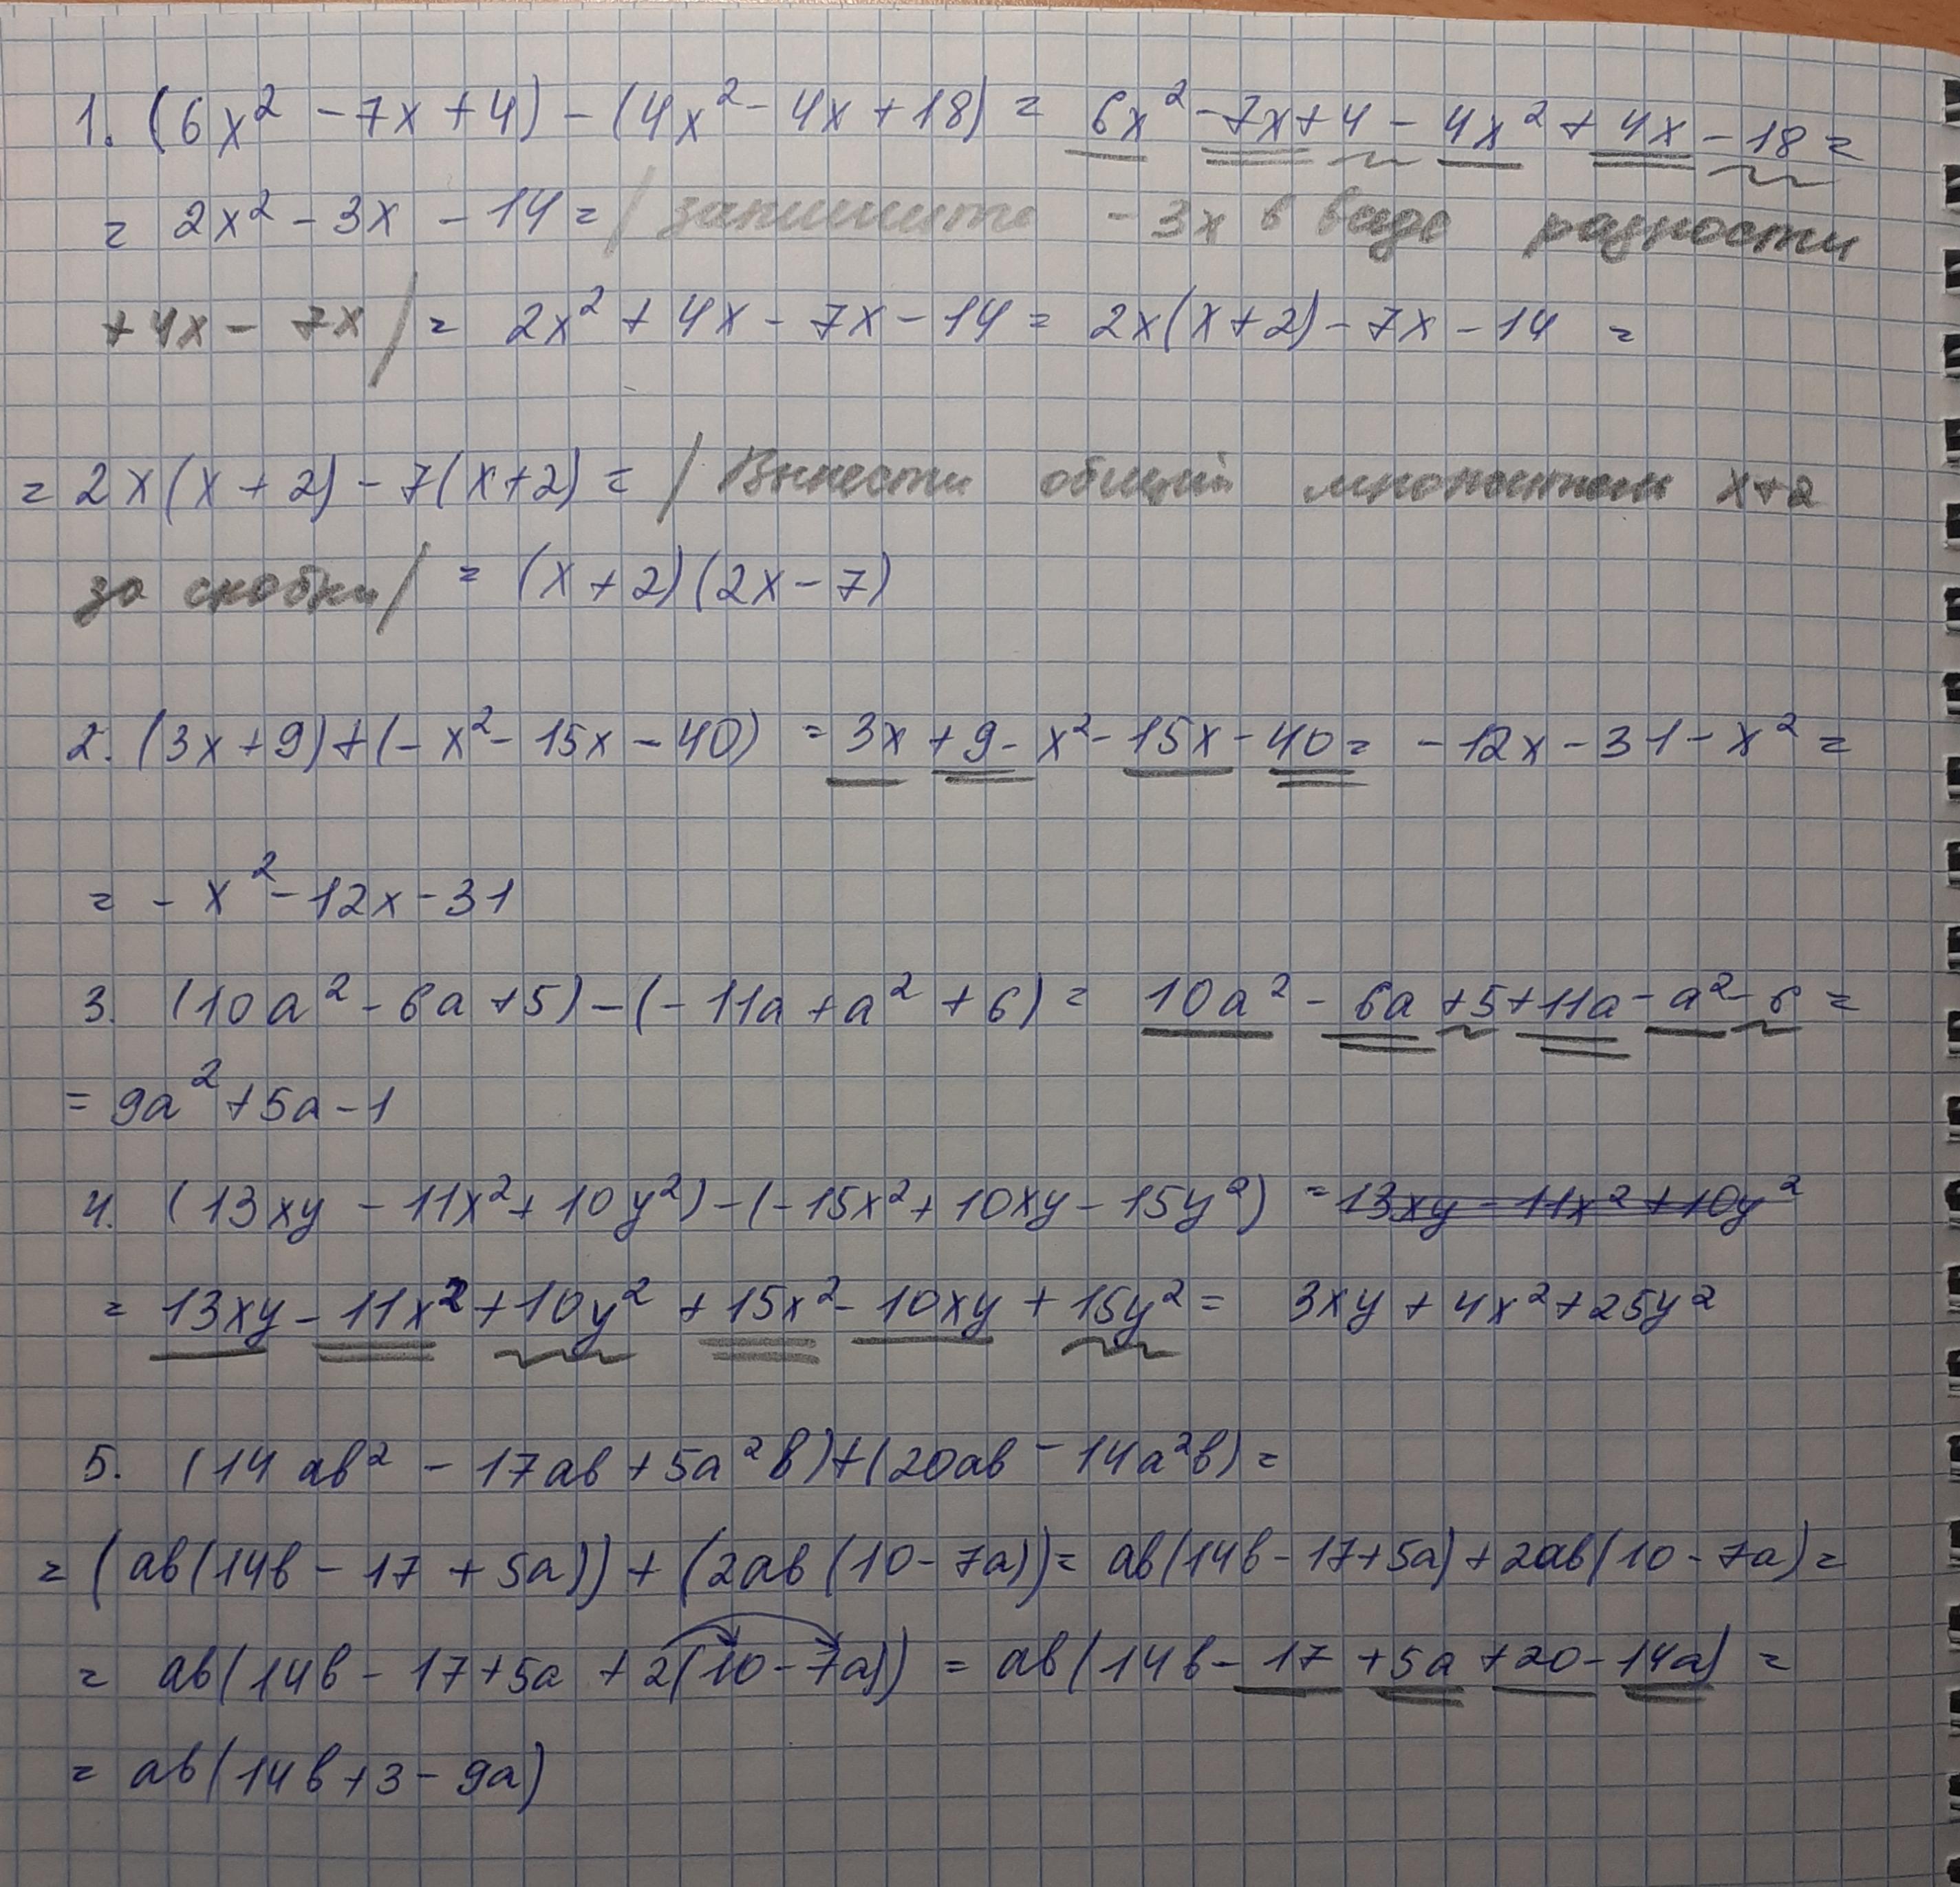 1. (6x² - 7x + 4) - (4x² - 4x + 18) = 6x² - 7x + 4 - 4x² + 4x - 18 =
= 2x² - 3x - 14 = / запишите - 3x в виде разности
+ 4x - 7x / = 2x² + 4x - 7x - 14 = 2x(x+2) - 7x - 14 =
= 2x(x + 2) - 7(x+2) = / Вынести общий множитель x+2
за скобки / = (x + 2)(2x - 7)
2. (3x + 9) + (- x² - 15x - 40) = 3x + 9 - x² - 15x - 40 = - 12x - 31 - x² =
= - x² - 12x - 31
3. (10a² - 6a + 5) - (- 11a + a² + 6) = 10a² - 6a + 5 + 11a - a² - 6 =
= 9a² + 5a - 1
4. (13xy - 11x² + 10y²) - (- 15x² + 10xy - 15y²) = 13xy - 11x² + 10y²
= 13xy - 11x² + 10y² + 15x² - 10xy + 15y² = 3xy + 4x² + 25y²
5. (14ab² - 17ab + 5a²b) + (20ab - 14a²b) =
= (ab(14b - 17 + 5a)) + (2ab(10 - 7a)) = ab(14b - 17 + 5a) + 2ab(10 - 7a) =
= ab(14b - 17 + 5a + 2(10 - 7a)) = ab(14b - 17 + 5a + 20 - 14a) =
= ab(14b + 3 - 9a)